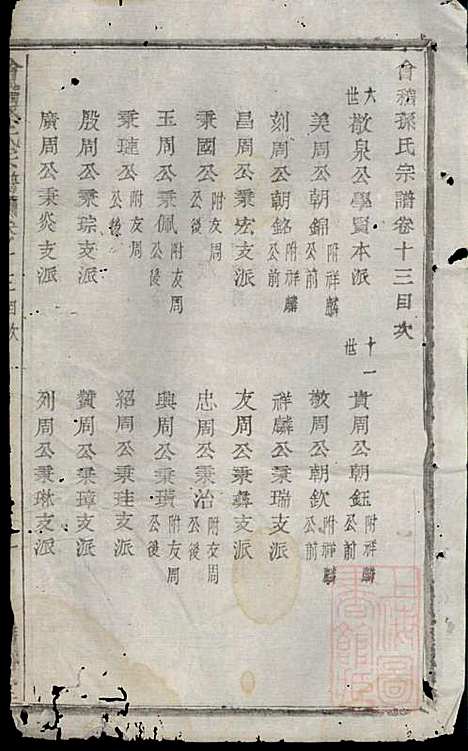 會稽孫氏宗譜卷十三目次
六世 敬泉公學賢本派 十一世 貴周公朝鈺附祥麟公前
美周公朝錦附祥麟公前 敬周公朝欽附祥麟公前
刻周公朝銘附祥麟公前 祥麟公秉瑞支派
昌周公秉宏支派 友周公秉彝支派
秉國公附友周公後 忠周公秉治附友周公後
玉周公秉佩附友周公後 興周公秉璜附友周公後
秉璉公附友周公後 紹周公秉珪支派
殷周公秉琮支派 贊周公秉璋支派
廣周公秉炎支派 列周公秉琳支派